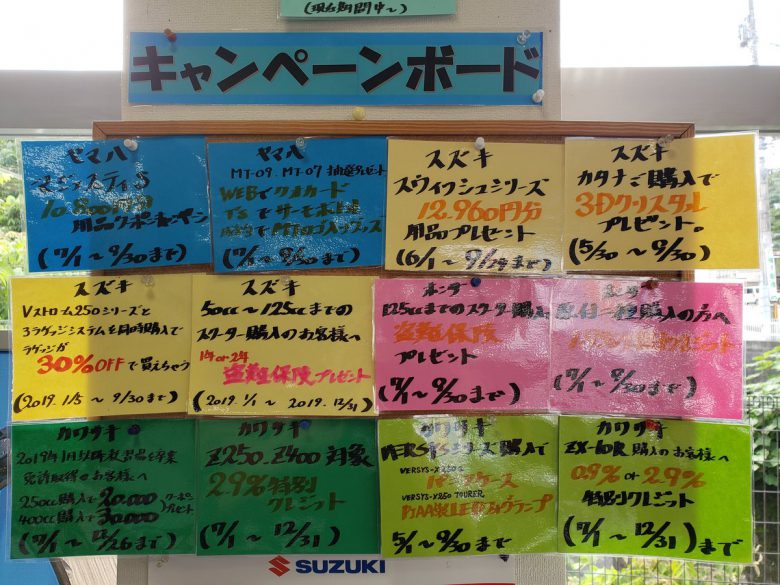 (現在期間中〜)
キャンペーンボード
ヤマハ
マジェスティS
10,800円分
用品クーポンキャンペーン
(7/1〜9/30まで)
ヤマハ
MT-09.MT-07 抽選プレゼント
WEBでクオカード
(7/1〜9/30まで)
スズキ
スウィッシュシリーズ
12.960円分
用品プレゼント
(6/1〜9/24まで)
スズキ
カタナご購入で
3Dクリスタル
プレゼント。
(5/30〜9/30)
スズキ
Vストローム250シリーズと
3ラゲッジシステムを同時購入で
ラゲッジが
30%OFFで買えちゃう
(2019.1/5〜9/30まで)
スズキ
50cc〜125ccまでの
スクーター購入のお客様へ
1年or2年
盗難保険プレゼント
(2019.1/1〜2019.12/31)
ホンダ
125ccまでのスクーター購入
盗難保険
プレゼント
(7/1〜9/30まで)
ホンダ
購入の方へ
(7/1〜9/30まで)
カワサキ
2019年1月以降教習所を卒業
免許取得のお客様へ
250cc購入で20,000
400cc購入で30,000
クーポンプレゼント
(7/1〜12/26まで)
カワサキ
Z250.Z400対象
2.9%特別
クレジット
(7/1〜12/31)
カワサキ
VERSYSシリーズ購入で
VERSYS-X250で
パニアケース
VERSYS-X250 TOURER
PIAA製LEDフォグランプ
5/1〜9/30まで
カワサキ
ZX-10R 購入のお客様へ
0.9% or 2.9%
特別クレジット
(7/1〜12/31)まで
SUZUKI